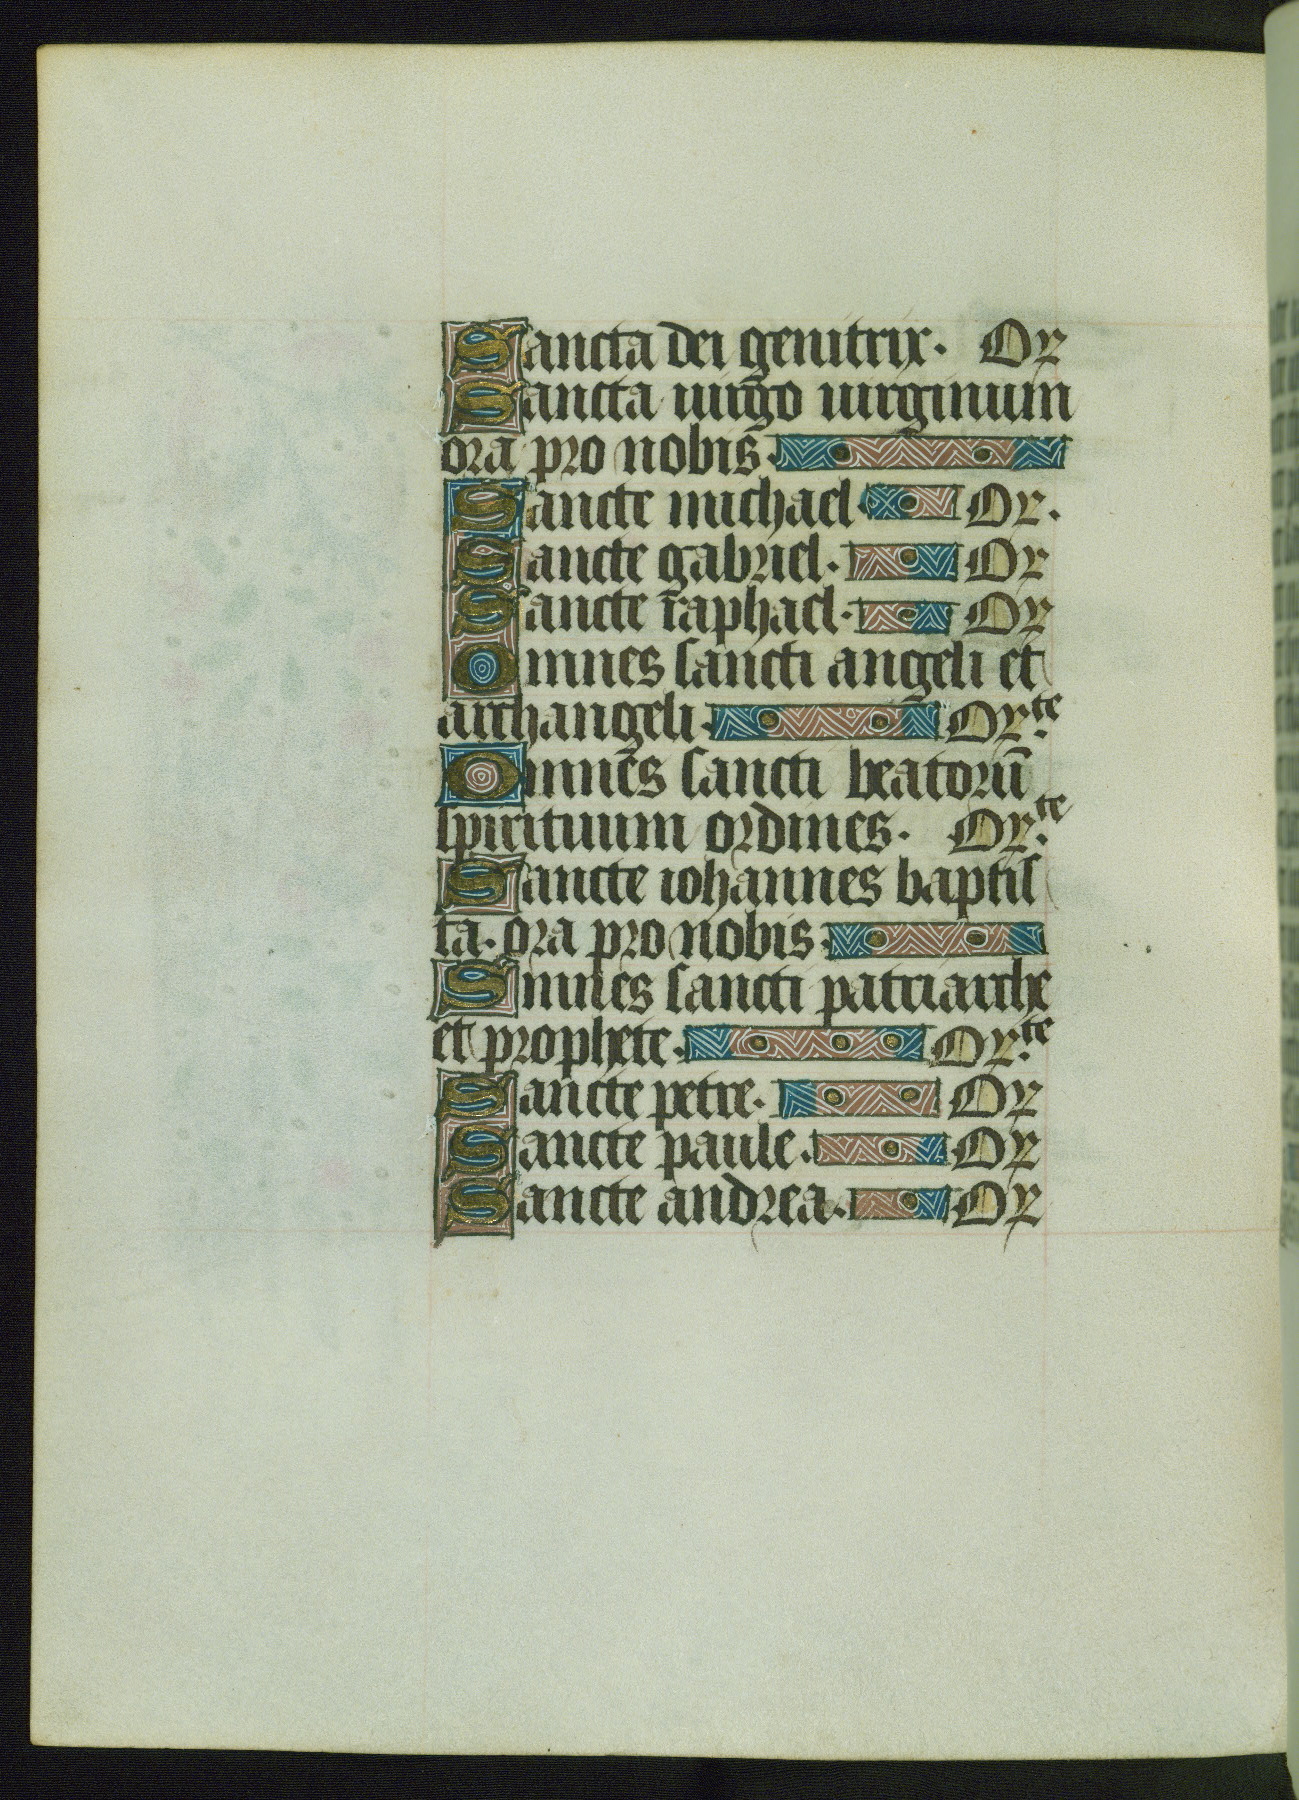 Sancta dei genitrix. Or
Sancta uirgo uirginum
ora pro nobis.
Sancte michael. Or.
Sancte gabriel. Or
Sancte raphael. Or
Omnes sancti angeli et
archangeli. Or.te
Omnes sancti beatorū
spirituum ordines. Or.te
Sancte iohannes baptis
ta. ora pro nobis.
Smnes sancti patriarche
et prophete. Or.te
Sancte petre. Or
Sancte paule. Or
Sancte andrea. Or